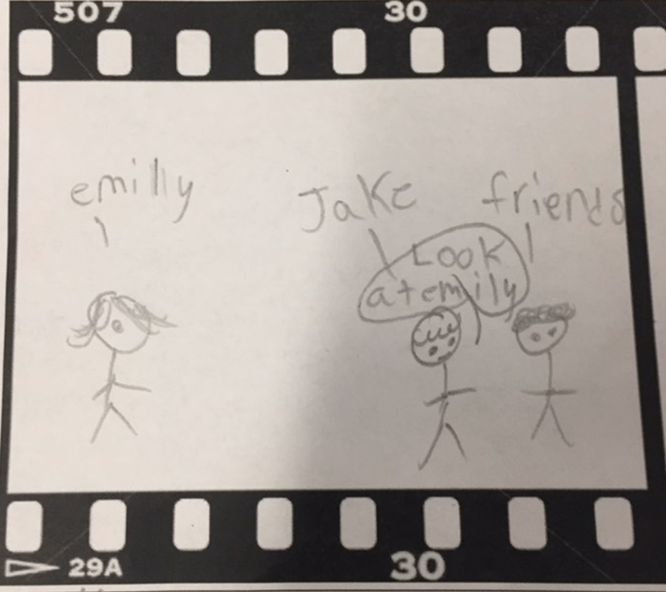 507 30
emilly Jake friends
Look
at emily
29A 30